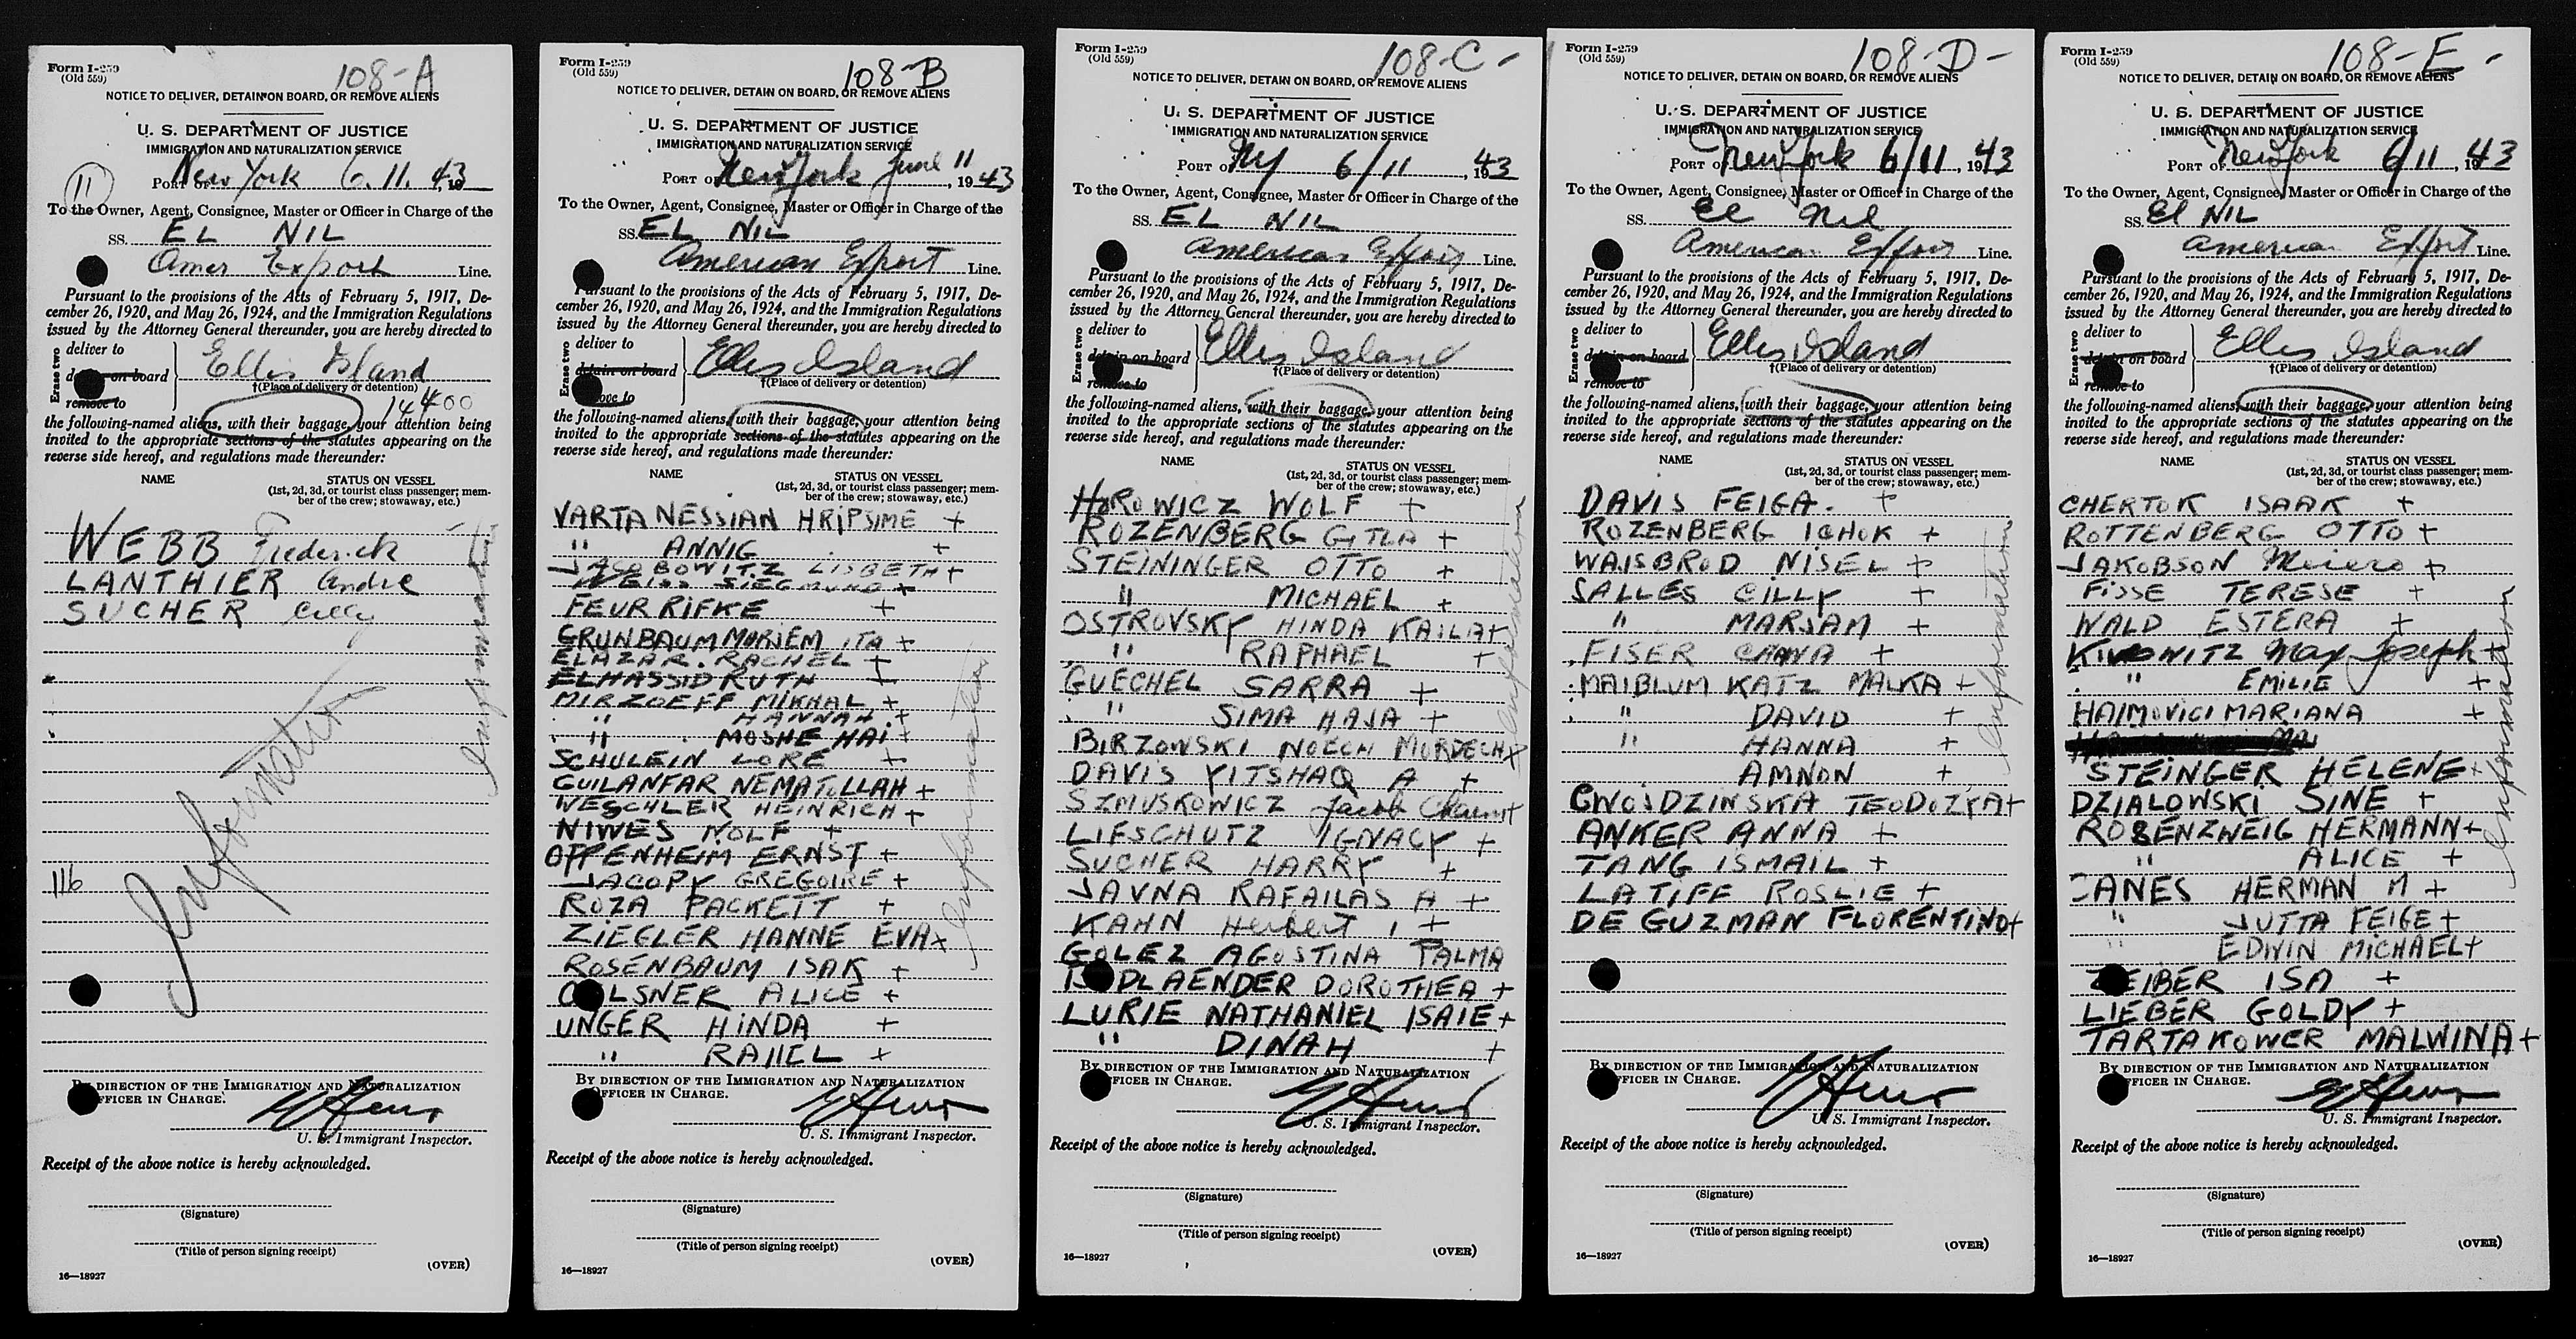 Form I-259
(Old 559)
108-A
NOTICE TO DELIVER, DETAIN ON BOARD, OR REMOVE ALIENS
U. S. DEPARTMENT OF JUSTICE
IMMIGRATION AND NATURALIZATION SERVICE
11
PORT OF New York 6.11.43 19
To the Owner, Agent, Consignee, Master or Officer in Charge of the
SS. EL NIL
Amer Export Line.
Pursuant to the provisions of the Acts of February 5, 1917, De-
cember 26, 1920, and May 26, 1924, and the Immigration Regulations
issued by the Attorney General thereunder, you are hereby directed to
Erase two
deliver to
on board
remove to
Ellis Island
†(Place of delivery or detention)
14400
the following-named aliens, with their baggage, your attention being
invited to the appropriate sections of the statutes appearing on the
reverse side hereof, and regulations made thereunder:
NAME STATUS ON VESSEL
(1st, 2d, 3d, or tourist class passenger; mem-
ber of the crew; stowaway, etc.)
WEBB Frederick
LANTHIER Andre
SUCHER Cilly
Information
Information
116
BY DIRECTION OF THE IMMIGRATION AND NATURALIZATION
OFFICER IN CHARGE.
U. S. Immigrant Inspector.
Receipt of the above notice is hereby acknowledged.
(Signature)
(Title of person signing receipt)
(OVER)
16—18927
Form I-259
(Old 559)
108-B
NOTICE TO DELIVER, DETAIN ON BOARD, OR REMOVE ALIENS
U. S. DEPARTMENT OF JUSTICE
IMMIGRATION AND NATURALIZATION SERVICE
PORT OF New York June 11, 1943
To the Owner, Agent, Consignee, Master or Officer in Charge of the
SS. EL NIL
American Export Line.
Pursuant to the provisions of the Acts of February 5, 1917, De-
cember 26, 1920, and May 26, 1924, and the Immigration Regulations
issued by the Attorney General thereunder, you are hereby directed to
Erase two
deliver to
detain on board
remove to
Ellis Island
†(Place of delivery or detention)
the following-named aliens, with their baggage, your attention being
invited to the appropriate sections of the statutes appearing on the
reverse side hereof, and regulations made thereunder:
NAME STATUS ON VESSEL
(1st, 2d, 3d, or tourist class passenger; mem-
ber of the crew; stowaway, etc.)
VARTANESSIAN HRIPSIME +
" ANNIG +
JACOBOWITZ LISBETH +
WEISS SIEGMUND +
FEUR RIFKE +
GRUNBAUM MORIEM ITA +
ELAZAR. RACHEL +
ELHASSID RUTH +
MIRZOEFF MIKHAL +
" HANNAH. +
" MOSHE HAI +
SCHULEIN LORE +
GUILANFAR NEMATOLLAH +
WESCHLER HEINRICH +
NIWES NOLF +
OPPENHEIM ERNST +
JACOPY GREGOIRE +
ROZA PACKETT +
ZIEGLER HANNE EVA +
ROSENBAUM ISAK +
LSNER ALICE +
UNGER HINDA +
" RAHEL +
Information
BY DIRECTION OF THE IMMIGRATION AND NATURALIZATION
OFFICER IN CHARGE.
U. S. Immigrant Inspector.
Receipt of the above notice is hereby acknowledged.
(Signature)
(Title of person signing receipt)
(OVER)
16—18927
Form I-259
(Old 559)
108-C-
NOTICE TO DELIVER, DETAIN ON BOARD, OR REMOVE ALIENS
U. S. DEPARTMENT OF JUSTICE
IMMIGRATION AND NATURALIZATION SERVICE
PORT OF NY 6/11, 1943
To the Owner, Agent, Consignee, Master or Officer in Charge of the
SS. EL NIL
American Export Line.
Pursuant to the provisions of the Acts of February 5, 1917, De-
cember 26, 1920, and May 26, 1924, and the Immigration Regulations
issued by the Attorney General thereunder, you are hereby directed to
Erase two
deliver to
detain on board
remove to
Ellis Island
†(Place of delivery or detention)
the following-named aliens, with their baggage, your attention being
invited to the appropriate sections of the statutes appearing on the
reverse side hereof, and regulations made thereunder:
NAME STATUS ON VESSEL
(1st, 2d, 3d, or tourist class passenger; mem-
ber of the crew; stowaway, etc.)
HOROWICZ WOLF +
ROZENBERG GITLA +
STEININGER OTTO +
" MICHAEL +
OSTROVSKY HINDA KAILA +
" RAPHAEL +
GUECHEL SARRA +
" SIMA HAJA +
BIRZOWSKI NOECH MORDECH +
DAVIS YITSHAQ A +
SZMUSKOWICZ Jacob Chaim +
LIFSCHUTZ IGNACY +
SUCHER HARRY +
JAVNA RAFAILAS A +
KAHN Herbert I +
GOLEZ AGOSTINA PALMA
DLAENDER DOROTHEA +
LURIE NATHANIEL ISAIE +
" DINAH +
Information
BY DIRECTION OF THE IMMIGRATION AND NATURALIZATION
OFFICER IN CHARGE.
U. S. Immigrant Inspector.
Receipt of the above notice is hereby acknowledged.
(Signature)
(Title of person signing receipt)
(OVER)
16—18927
Form I-259
(Old 559)
108-D-
NOTICE TO DELIVER, DETAIN ON BOARD, OR REMOVE ALIENS
U. S. DEPARTMENT OF JUSTICE
IMMIGRATION AND NATURALIZATION SERVICE
PORT OF New York 6/11, 1943
To the Owner, Agent, Consignee, Master or Officer in Charge of the
SS. El Nil
American Export Line.
Pursuant to the provisions of the Acts of February 5, 1917, De-
cember 26, 1920, and May 26, 1924, and the Immigration Regulations
issued by the Attorney General thereunder, you are hereby directed to
Erase two
deliver to
detain on board
remove to
Ellis Island
†(Place of delivery or detention)
the following-named aliens, with their baggage, your attention being
invited to the appropriate sections of the statutes appearing on the
reverse side hereof, and regulations made thereunder:
NAME STATUS ON VESSEL
(1st, 2d, 3d, or tourist class passenger; mem-
ber of the crew; stowaway, etc.)
DAVIS FEIGA. +
ROZENBERG ICHOK +
WAISBROD NISEL +
SALLES CILLY +
" MARJAM +
FISER CHAVA +
MAIBLUM KATZ MALKA +
" DAVID +
" HANNA +
AMNON +
GWOJDZINSKA TEODOZYA +
ANKER ANNA +
TANG ISMAIL +
LATIFF ROSLIE +
DE GUZMAN FLORENTINO +
Information
BY DIRECTION OF THE IMMIGRATION AND NATURALIZATION
OFFICER IN CHARGE.
U. S. Immigrant Inspector.
Receipt of the above notice is hereby acknowledged.
(Signature)
(Title of person signing receipt)
(OVER)
16—18927
Form I-259
(Old 559)
108-E-
NOTICE TO DELIVER, DETAIN ON BOARD, OR REMOVE ALIENS
U. S. DEPARTMENT OF JUSTICE
IMMIGRATION AND NATURALIZATION SERVICE
PORT OF New York 6/11, 1943
To the Owner, Agent, Consignee, Master or Officer in Charge of the
SS. El NIL
American Export Line.
Pursuant to the provisions of the Acts of February 5, 1917, De-
cember 26, 1920, and May 26, 1924, and the Immigration Regulations
issued by the Attorney General thereunder, you are hereby directed to
Erase two
deliver to
detain on board
remove to
Ellis Island
†(Place of delivery or detention)
the following-named aliens, with their baggage, your attention being
invited to the appropriate sections of the statutes appearing on the
reverse side hereof, and regulations made thereunder:
NAME STATUS ON VESSEL
(1st, 2d, 3d, or tourist class passenger; mem-
ber of the crew; stowaway, etc.)
CHERTOK ISAAK +
ROTTENBERG OTTO +
JAKOBSON +
FISSE TERESE +
WALD ESTERA +
Max Joseph +
" EMILIE +
HAIMOVICI MARIANA +
STEINGER HELENE +
DZIALOWSKI SINE +
ROSENZWEIG HERMANN +
" ALICE +
JANES HERMAN M +
" JUTTA FEIGE +
" EDWIN MICHAEL +
EIBER ISA +
LIEBER GOLDY +
TARTAKOWER MALWINA +
Information
BY DIRECTION OF THE IMMIGRATION AND NATURALIZATION
OFFICER IN CHARGE.
U. S. Immigrant Inspector.
Receipt of the above notice is hereby acknowledged.
(Signature)
(Title of person signing receipt)
(OVER)
16—18927